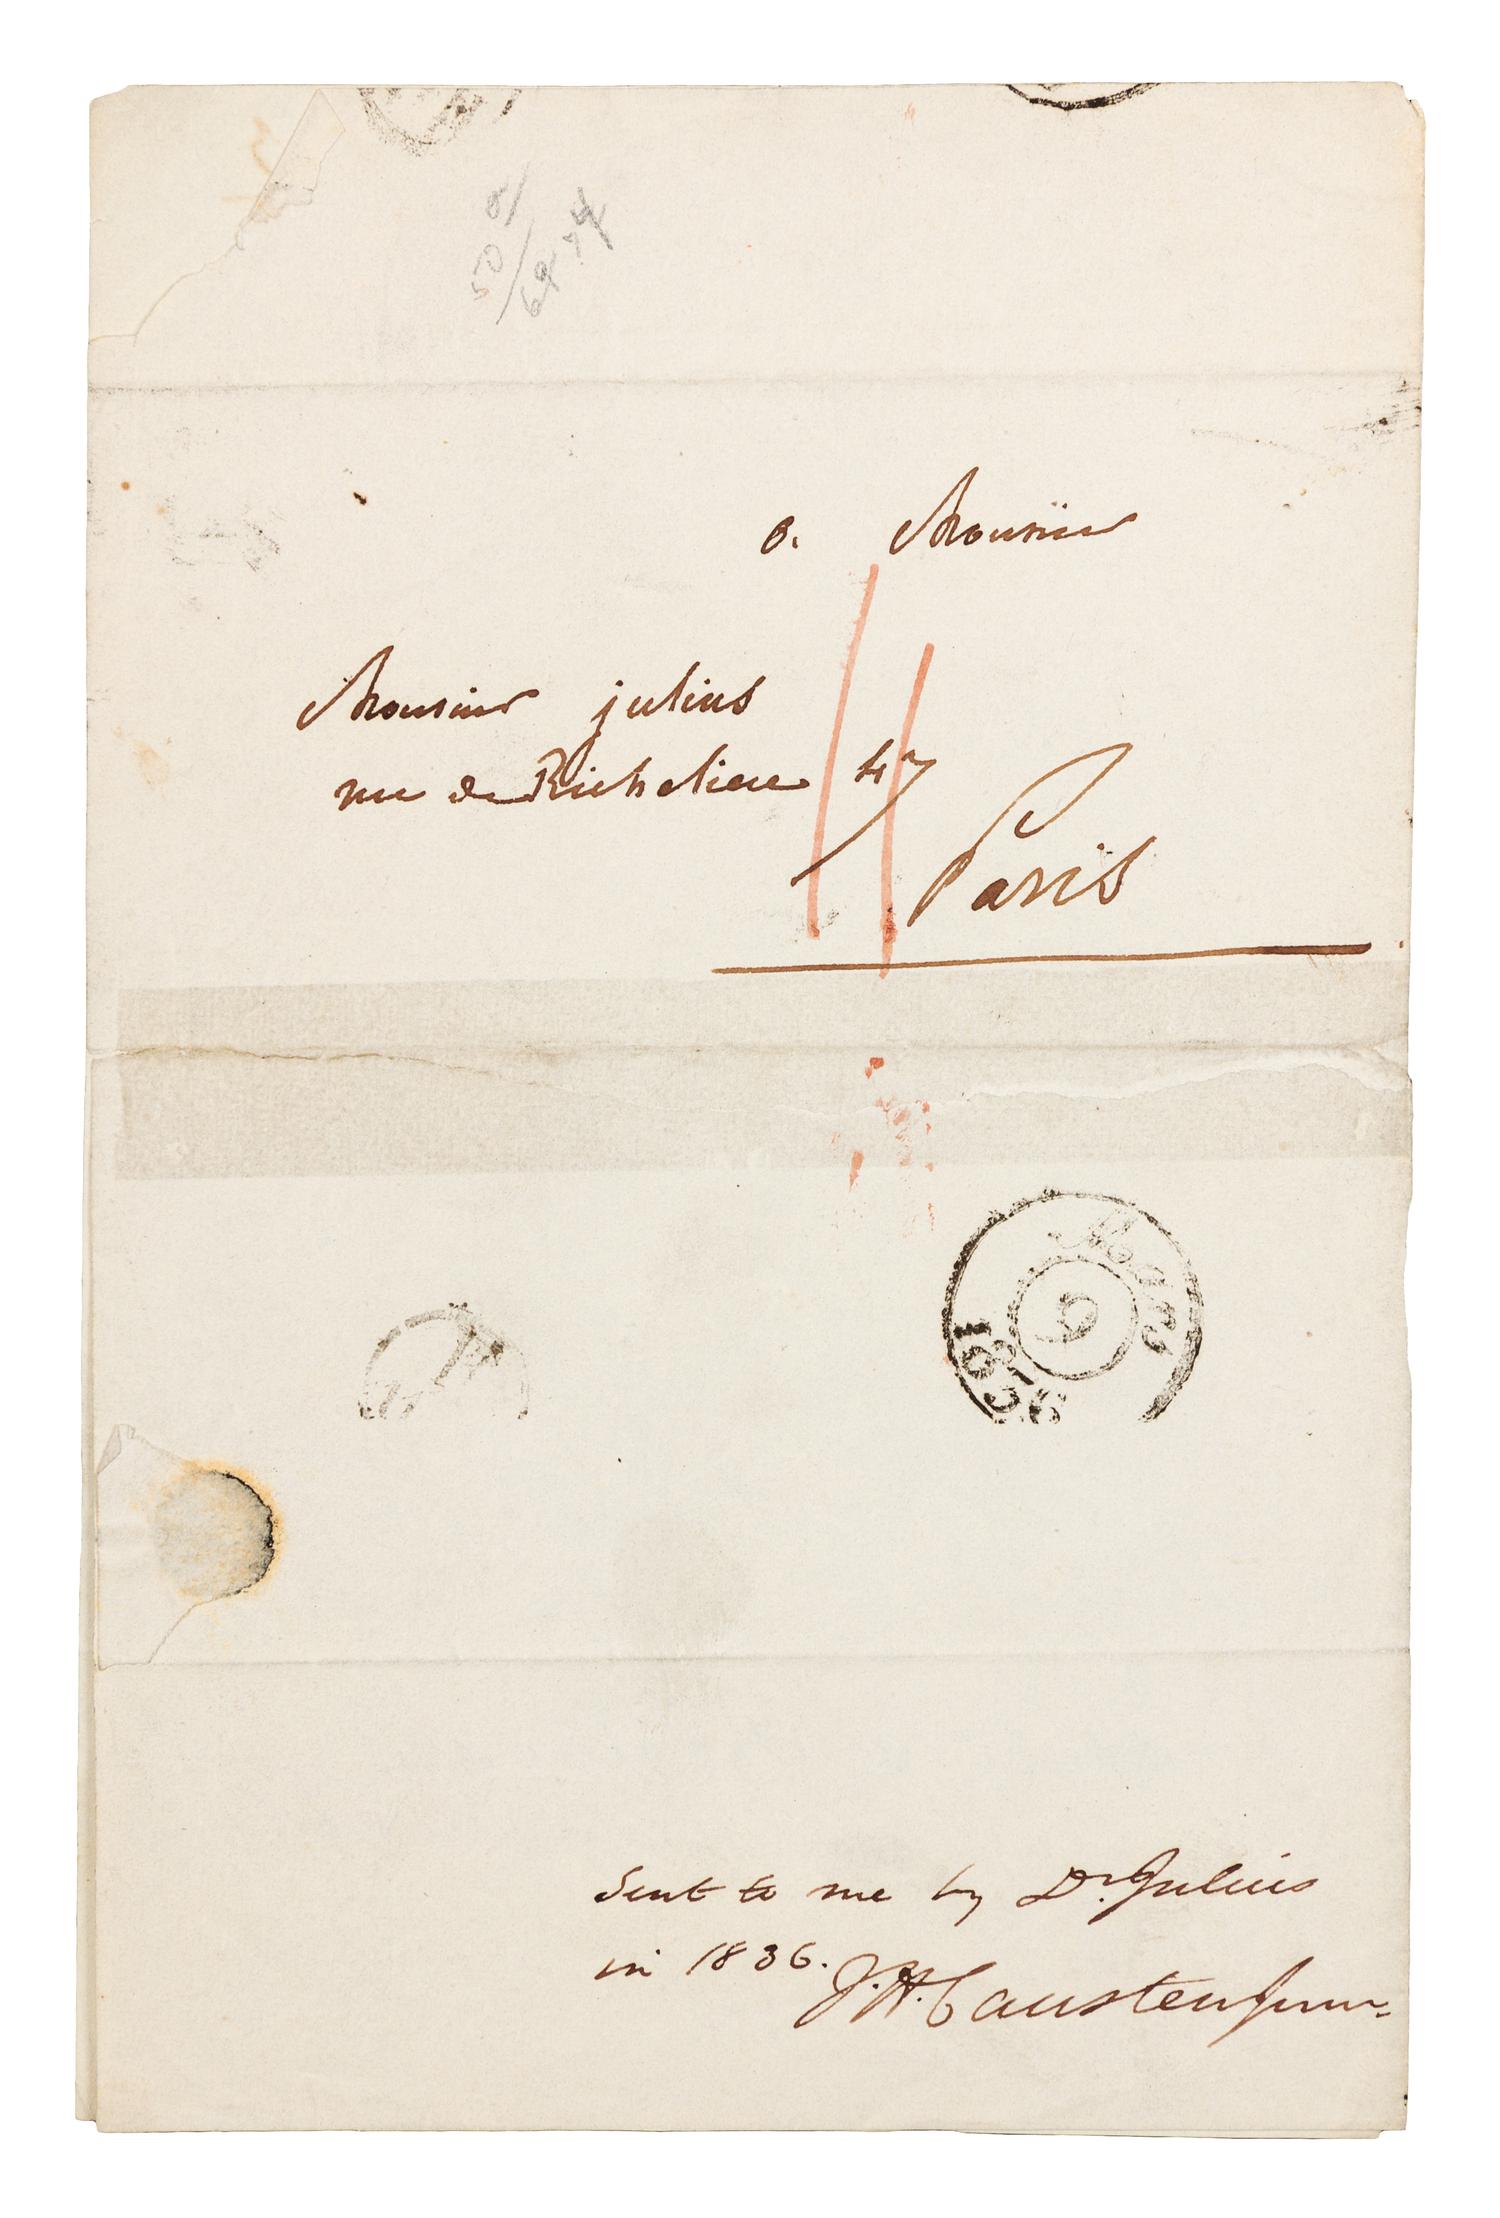 a Monsieur
Monsieur julius
rue de Richelieu 47
Paris
Mars
9
1836
Sent to me by Dr. Julius
in 1836.
J. H. Causten Junr.